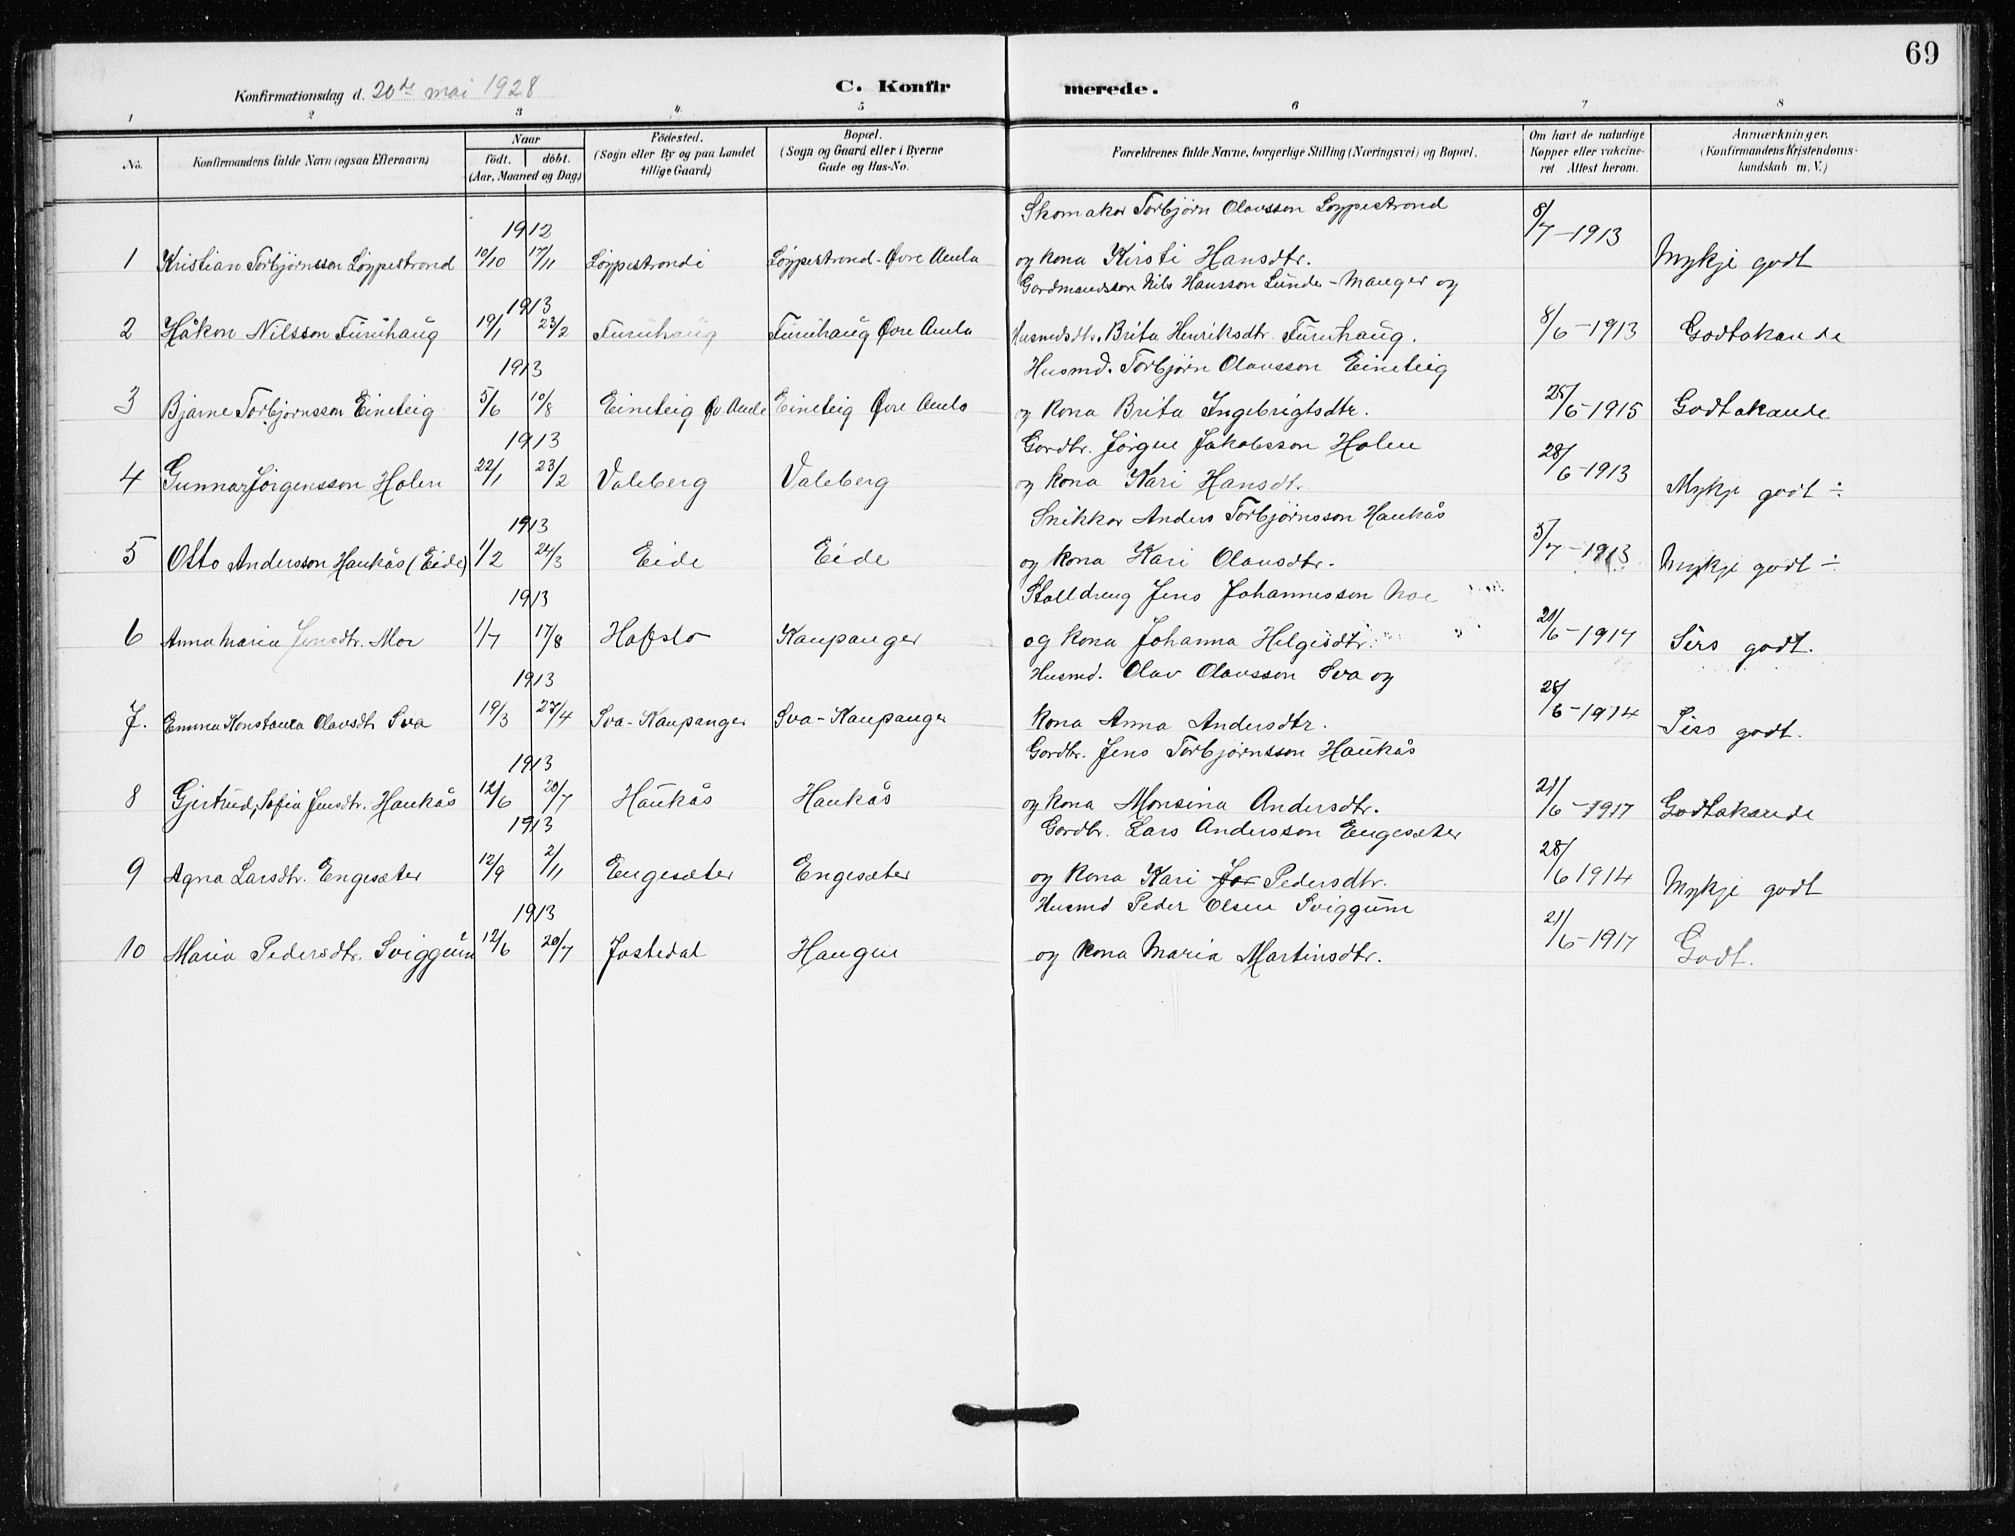 69
Konfirmationsdag d. 20de mai 1928 C. Konfirmerede.
1 2 3 4 5 6 7 8
No. Konfirmandens fulde Navn (ogsaa Efternavn) Naar født. døbt. (Aar, Maaned og Dag) Födested. (Sogn eller By og paa Landet tillige Gaard) Bopæl. (Sogn og Gaard eller i Byerne Gade og Hus-No. Forældrenes fulde Navne, borgerlige Stilling (Næringsvei) og Bopæl. Om havt de naturlige Kopper eller vakcineret Attest herom. Anmærkninger. (Konfirmandens Kristendomskundskab m. V.)
1912 Skomakar Torbjørn Olavsson Løypestrond
1 Kristian Torbjørnsson Løypestrond 10/10 17/11 Løypestrondi Løypestrond - Øvre Amla og kona Kirsti Hansdtr. 8/7-1913 Mykje godt
1913 Gardmandsson Nils Hansson Lunde - Manger og
2 Håkon Nilsson Furuhaug 19/1 23/2 Furuhaug Furuhaug Øvre Amla Husmdsdtr. Brita Henriksdtr Furuhaug. 8/6-1913 Godtakande
1913 Husmd. Torbjørn Olavsson Eineteig
3 Bjarne Torbjørnsson Eineteig 5/6 10/8 Eineteig Øv. Amle Eineteig Øvre Amla og kona Brita Ingebrigtsdtr. 25/6-1915 Godtakande
1913 Gardbr. Jørgen Jakobsson Holen
4 Gunnar Jørgensson Holen 22/1 23/2 Valeberg Valeberg og kona Kari Hansdt. 28/6-1913 Mykje godt ÷
1913 Snikkar Anders Torbjørnsson Haukås
5 Otto Andersson Haukås (Eide) 1/2 24/3 Eide Eide og kona Kari Olavsdtr. 5/7-1913 Mykje godt ÷
1913 Stalldreng Jens Johannesson Moe
6 Anna Maria Jensdtr. Moe 1/7 17/8 Hafslo Kaupanger og kona Johanna Helgesdtr. 21/6-1917 Sers godt.
1913 Husmd. Olav Olavsson Sva og
7. Emma Konstanza Olavsdtr Sva 19/3 27/4 Sva-Kaupanger Sva-Kaupanger kona Anna Andersdtr. 28/6-1914 Sers godt.
1913 Gardbr. Jens Torbjørnsson Haukås
8 Gjertrud, Sofia Jensdtr. Haukås 12/6 20/7 Haukås Haukås og kona Monsina Andersdtr. 21/6-1917 Godtakande
1913 Gardbr. Lars Andersson Engesæter
9 Agna Larsdtr. Engesæter 12/9 2/11 Engesæter Engesæter og kona Kari Pedersdtr. 28/6 1914 Mykje godt
1913 Husmd Peder Olsen Sviggum
10 Maria Pedersdtr. Sviggum 12/6 20/7 Jostedal Haugen og kona Maria Martinsdtr. 21/6-1917 Godt.